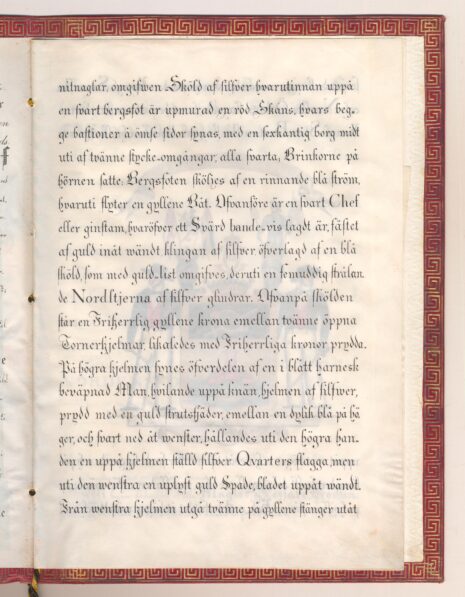 nitnaglar, omgifwen Sköld af silfver hvarutinnan uppå
en svart bergsfot är upmurad en röd Skans, hvars beg-
ge bastioner å ömse sidor synas, med en sexkantig borg midt
uti af tvänne stycke-omgångar, alla svarta, Brinkorne på
hörnen satte: Bergsfoten sköljes af en rinnande blå ström,
hvaruti flyter en gyllene Båt. Ofvanföre är en svart Chef
eller ginstam, hvaröfver ett Svärd bande-vis lagdt är, fästet
af guld inåt wändt klingan af silfver öfverlagd af en blå
sköld, som med guld-list omgifves, deruti en femuddig strålan
de Nordstjerna af silfver glindrar. Ofvanpå skölden
står en Friherrlig gyllene krona emellan tvänne öppna
Tornerhjelmar, likaledes med Friherrliga kronor prydda.
På högra hjelmen synes öfverdelen af en i blått harnesk
beväpnad Man, hvilande uppå knän, hjelmen af silfwer,
prydd med en guld strutsfjäder, emellan en dylik blå på hö
ger, och svart ned åt wenster, hållandes uti den högra han
den en uppå hjelmen ställd silfver Qvarters flagga, men
uti den wenstra en uplyft guld Spade, bladet uppåt wändt.
Från wenstra hjelmen utgå tvänne på gyllene stänger utåt